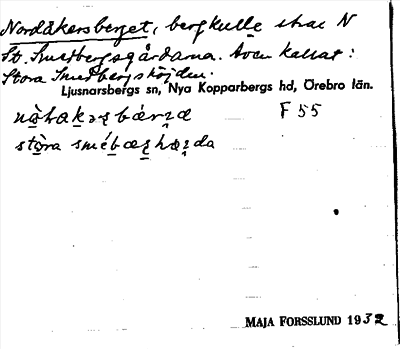 Nordåkersberget, bergkulle strax N
St. Smedbergsgårdarna. Även kallat:
Stora Smedbergshöjden.
Ljusnarsbergs sn, Nya Kopparbergs hd, Örebro län.
F 55
MAJA FORSSLUND 1932